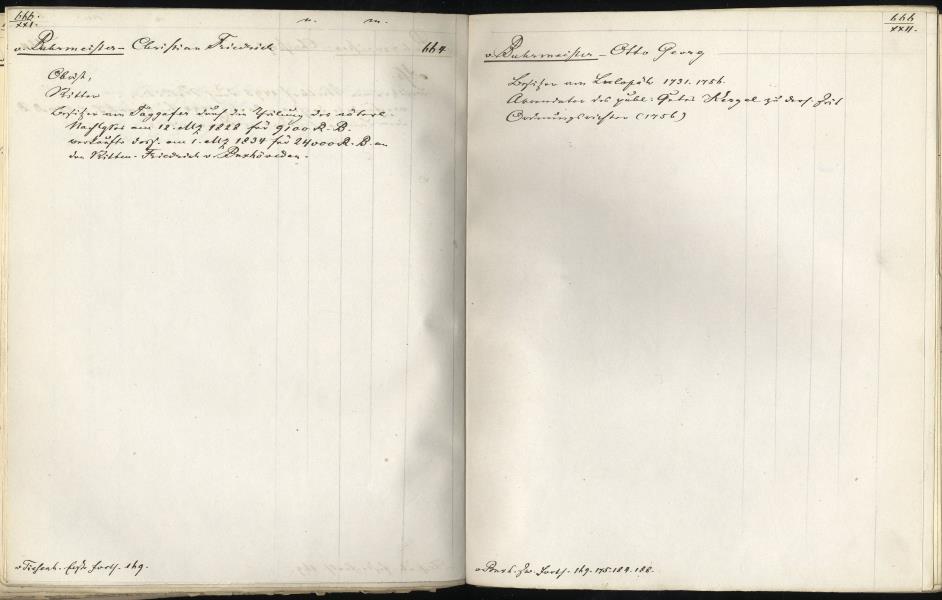 666
XXI.
v. Buhrmeister - Christian Friedrich 664
Obrist,
Ritter
Besitzer von Taggafer durch die Theilung des väterl.
Nachlasses am 12. Mz 1828 für 9100 R. B.
verkaufte dass. am 1. Mz 1834 für 24000 R. B. an
den Ritterm. Friedrich v. Buxhöwden.
v Tiesenh. Erste Forts. 149.
666
XXII.
v. Buhrmeister - Otto Georg
Besitzer von 1731. 1756.
Arrendator des publ. Gutes Kergel zu ders. Zeit
Ordnungsrichter (1756)
v Buxh. Zw. Forts. 149. 175. 184. 188.